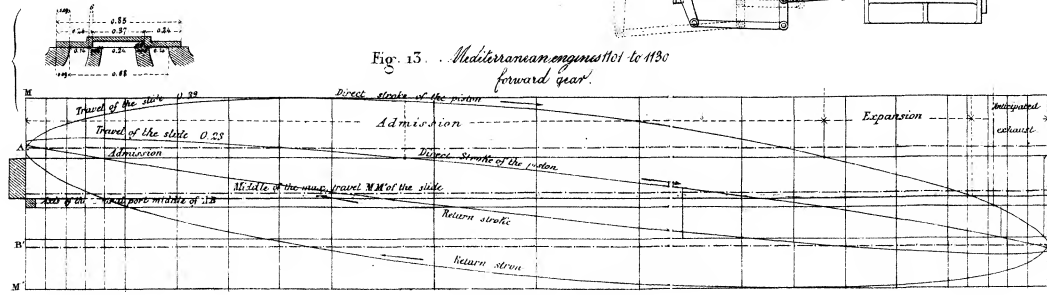 0.85
0.24 0.37 0.24
0.24
0.68
Fig. 13. Mediterranean engines 1101 to 1130
forward gear.
M
Travel of the slide 0.39
Direct stroke of the piston
Admission
Expansion
Anticipated
exhaust
Travel of the slide 0.23
A
Admission
Direct Stroke of the piston
Middle of the max. travel MM' of the slide
Axis of the port middle of AB
Return stroke
B'
Return stron
M'